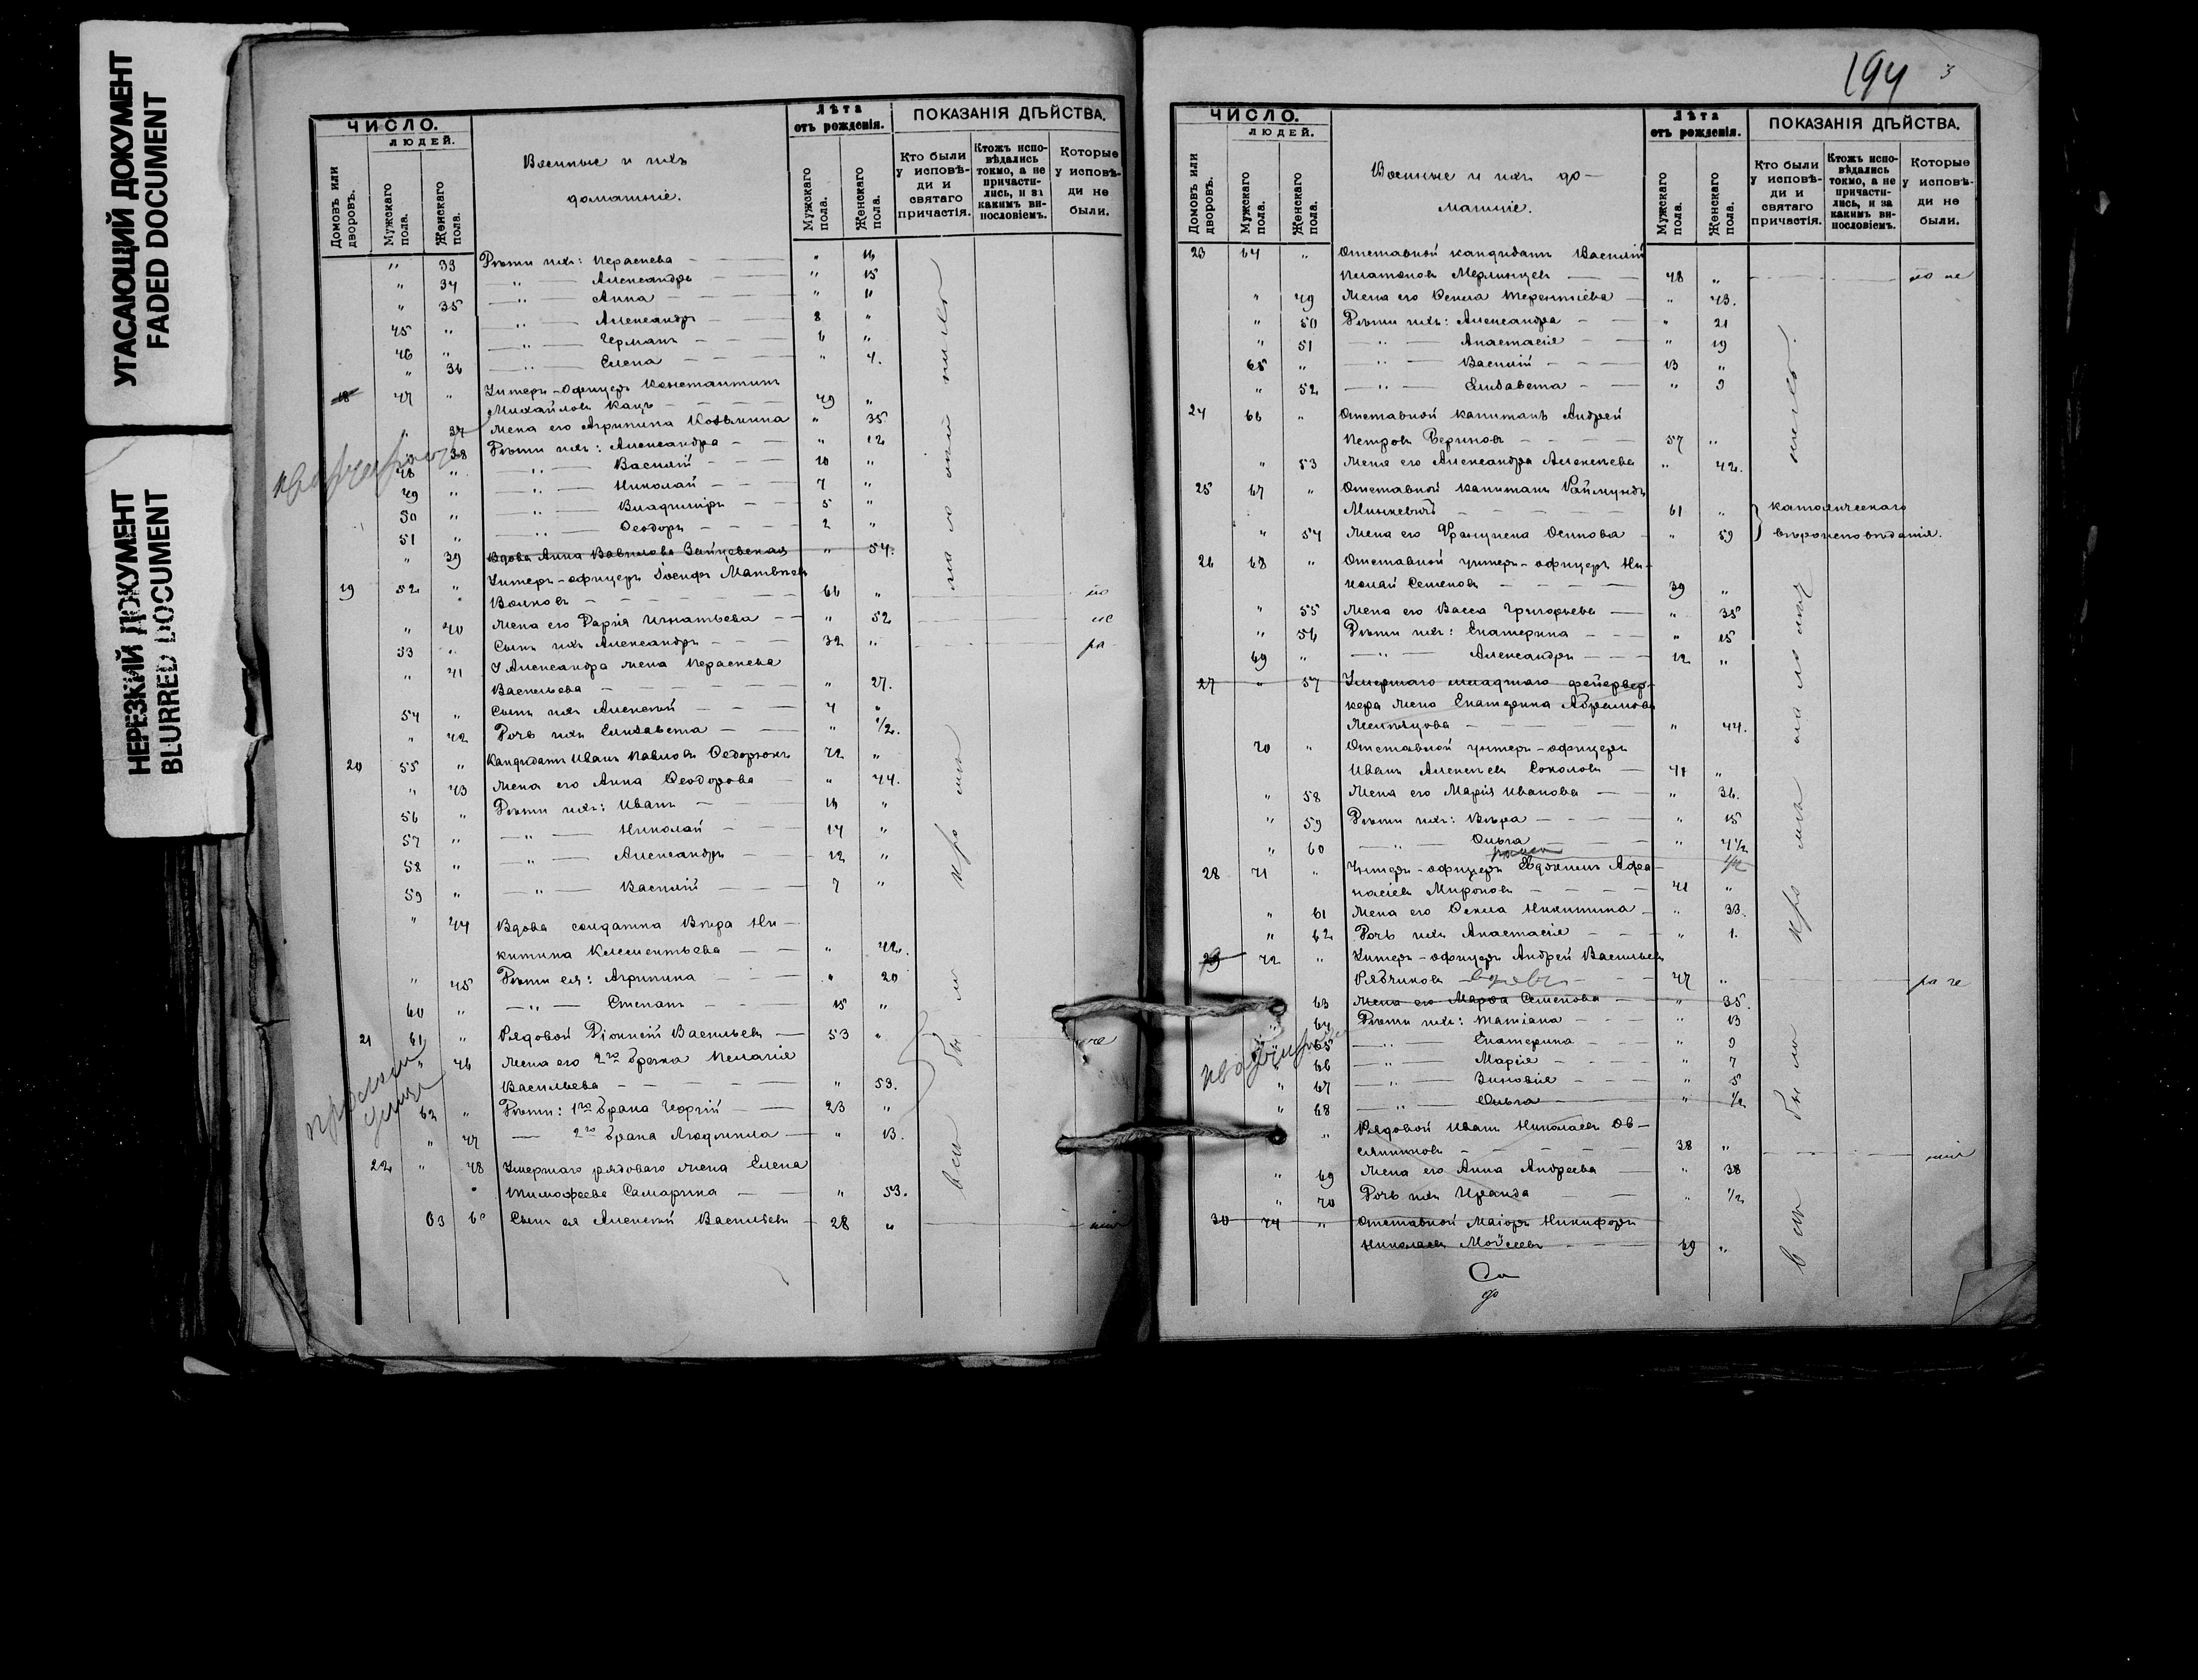 УГАСАЮЩИЙ ДОКУМЕНТ
FADED DOCUMENT
НЕРЕЗКИЙ ДОКУМЕНТ
BLURRED DOCUMENT
ЧИСЛО.
ЛЮДЕЙ.
Домовъ или дворовъ.
Мужскаго пола.
Женскаго пола.
Военные и ихъ
домашніе.
Лѣта
отъ рожденія.
Мужскаго пола.
Женскаго пола.
ПОКАЗАНІЯ ДѢЙСТВА.
Кто были у исповѣди и святаго причастія.
Ктожъ исповѣдались токмо, а не причастились, и за какимъ винословіемъ.
Которые у исповѣди не были.
" 33 Дѣти ихъ: Параскева " 16
" 34 — " — Александра " 15
" 35 — " — Анна " 11
45 " — " — Александръ 8 "
46 " — " — Германъ 6 "
" 36 — " — Елена " 4.
18 47 " Унтеръ-офицеръ Константинъ
Михайловъ Кацъ 49 "
" 37 Жена его Агрипина Козьмина " 35
" 38 Дѣти ихъ: Александра " 12
48 " — " — Василій 10 "
49 " — " — Николай 7 "
50 " — " — Владиміръ 5 "
51 " — " — Ѳеодоръ 2 "
" 39 Вдова Анна Вавилова Зайцевская " 54.
Унтеръ-офицеръ Іосифъ Матвѣевъ
19 52 " Волковъ 66 "
" 40 Жена его Дарія Игнатьева " 52
53 " Сынъ ихъ Александръ 32 "
" 41 У Александра жена Параскева
Васильева " 27.
54 " Сынъ ихъ Алексѣй 4 "
" 42 Дочь ихъ Елизавета " 1/2.
20 55 " Кандидатъ Иванъ Павловъ Федорюкъ 72 "
" 43 Жена его Анна Ѳеодорова " 44.
56 " Дѣти ихъ: Иванъ 16 "
57 " — " — Николай 14 "
58 " — " — Александръ 12 "
59 " — " — Василій 7 "
" 44 Вдова солдатка Вѣра Ни-
китина Клементьева " 42.
" 45 Дѣти ея: Агрипина " 20
60 " — " — Степанъ 15 "
21 61 " Рядовой Діонисій Васильевъ 53 "
" 46 Жена его 2го брака Пелагія
Васильева " 53.
62 " Дѣти: 1го брака Георгій 23 "
" 47 — 2го брака Людмила " 13.
22 " 48 Умершаго рядоваго жена Елена
Тимофеева Самарина " 53.
63 " Сынъ ея Алексѣй Васильевъ 28 "
194 3
ЧИСЛО.
ЛЮДЕЙ.
Домовъ или дворовъ.
Мужскаго пола.
Женскаго пола.
Военные и ихъ до-
машніе.
Лѣта
отъ рожденія.
Мужскаго пола.
Женскаго пола.
ПОКАЗАНІЯ ДѢЙСТВА.
Кто были у исповѣди и святаго причастія.
Ктожъ исповѣдались токмо, а не причастились, и за какимъ винословіемъ.
Которые у исповѣди не были.
23 64 " Отставной кандидатъ Василій
Платоновъ 48 "
" 49 Жена его Ѳекла Терентіева " 43.
" 50 Дѣти ихъ: Александра " 21
" 51 — " — Анастасія " 19
65 " — " — Василій 13 "
" 52 — " — Елизавета " 9
24 66 " Отставной капитанъ Андрей
Петровъ 57 "
" 53 Жена его Александра Алексѣева " 42.
25 67 " Отставной капитанъ Раймундъ
Минкевичъ 61 " католическаго
" 54 Жена его Францишка Осипова " 59 вѣроисповѣданія.
26 68 " Отставной унтеръ-офицеръ Ни-
колай Семеновъ 39 "
" 55 Жена его Васса Григорьева " 35
" 56 Дѣти ихъ: Екатерина " 15
69 " — " — Александръ 12 "
27 " 57 Умершаго младшаго фейервер-
кера жена Екатерина Абрамова
" 44.
70 " Отставной унтеръ-офицеръ
Иванъ Алексѣевъ Соколовъ 41 "
" 58 Жена его Марія Иванова " 36.
" 59 Дѣти ихъ: Вѣра " 15
" 60 — " — Ольга " 4 1/2
28 71 " Унтеръ-офицеръ Евдокимъ Афа-
насіевъ Мироновъ 41 "
" 61 Жена его Ѳекла Никитина " 33.
" 62 Дочь ихъ Анастасія " 1.
29 72 " Унтеръ-офицеръ Андрей Васильевъ
Рябчиковъ вдовъ 47 "
63 Жена его Марѳа Семенова " 35.
" 64 Дѣти ихъ: Татіана " 13
" 65 — " — Екатерина " 9
" 66 — " — Марія " 7
" 67 — " — Зиновія " 5
" 68 — " — Ольга " 1/2
" Рядовой Иванъ Николаевъ Ов-
сяниковъ 38 "
" 69 Жена его Анна Андреева " 38
" 70 Дочь ихъ Ираида " 1/2
30 74 " Отставной Маіоръ Никифоръ
Николаевъ Мойсеевъ 49 "